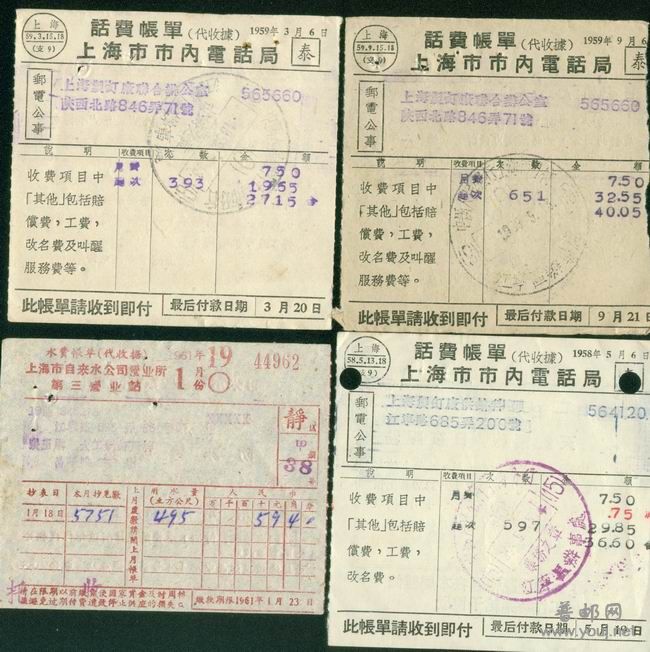 上海
59.3.15.18
(支9)
話費帳單(代收據)
1959年 3月6日
上海市市內電話局
泰
郵電公事
565660
陝西北路846弄71號
說明
收費項目
次數
金額
收費項目中
月費
7.50
「其他」包括賠
393
19.65
償費，工費，
27.15
改名費及叫醒
服務費等。
此帳單請收到即付
最后付款日期
3月20日
上海
59.9.15.18
(支9)
話費帳單(代收據)
1959年9月6
上海市市內電話局
泰
郵電公事
565660
陝西北路846弄71號
說明
收費項目
次數
金額
收費項目中
月費
7.50
「其他」包括賠
651
32.55
償費，工費，
40.05
改名費及叫醒
服務費等。
此帳單請收到即付
最后付款日期
9月21日
水費帳單(代收據)
1961年
19
44962
上海市自來水公司營业所
1月份
第三營业站
靜
38
抄表日
本月抄見數
用水量
人民币
(立方公尺)
1月18日
5751
495
594
繳款期限1961年1月23日
上海
58.5.13.18
(支9)
話費帳單(代收據)
1958年5月6日
上海市市內電話局
郵電公事
564120
江寧路685弄200號
說明
收費項目
次數
金額
收費項目中
月費
7.50
.75
「其他」包括賠
597
29.85
償費，工費，
36.60
改名費。
此帳單請收到即付
最后付款日期
5月19日
普邮网
www.youj.net